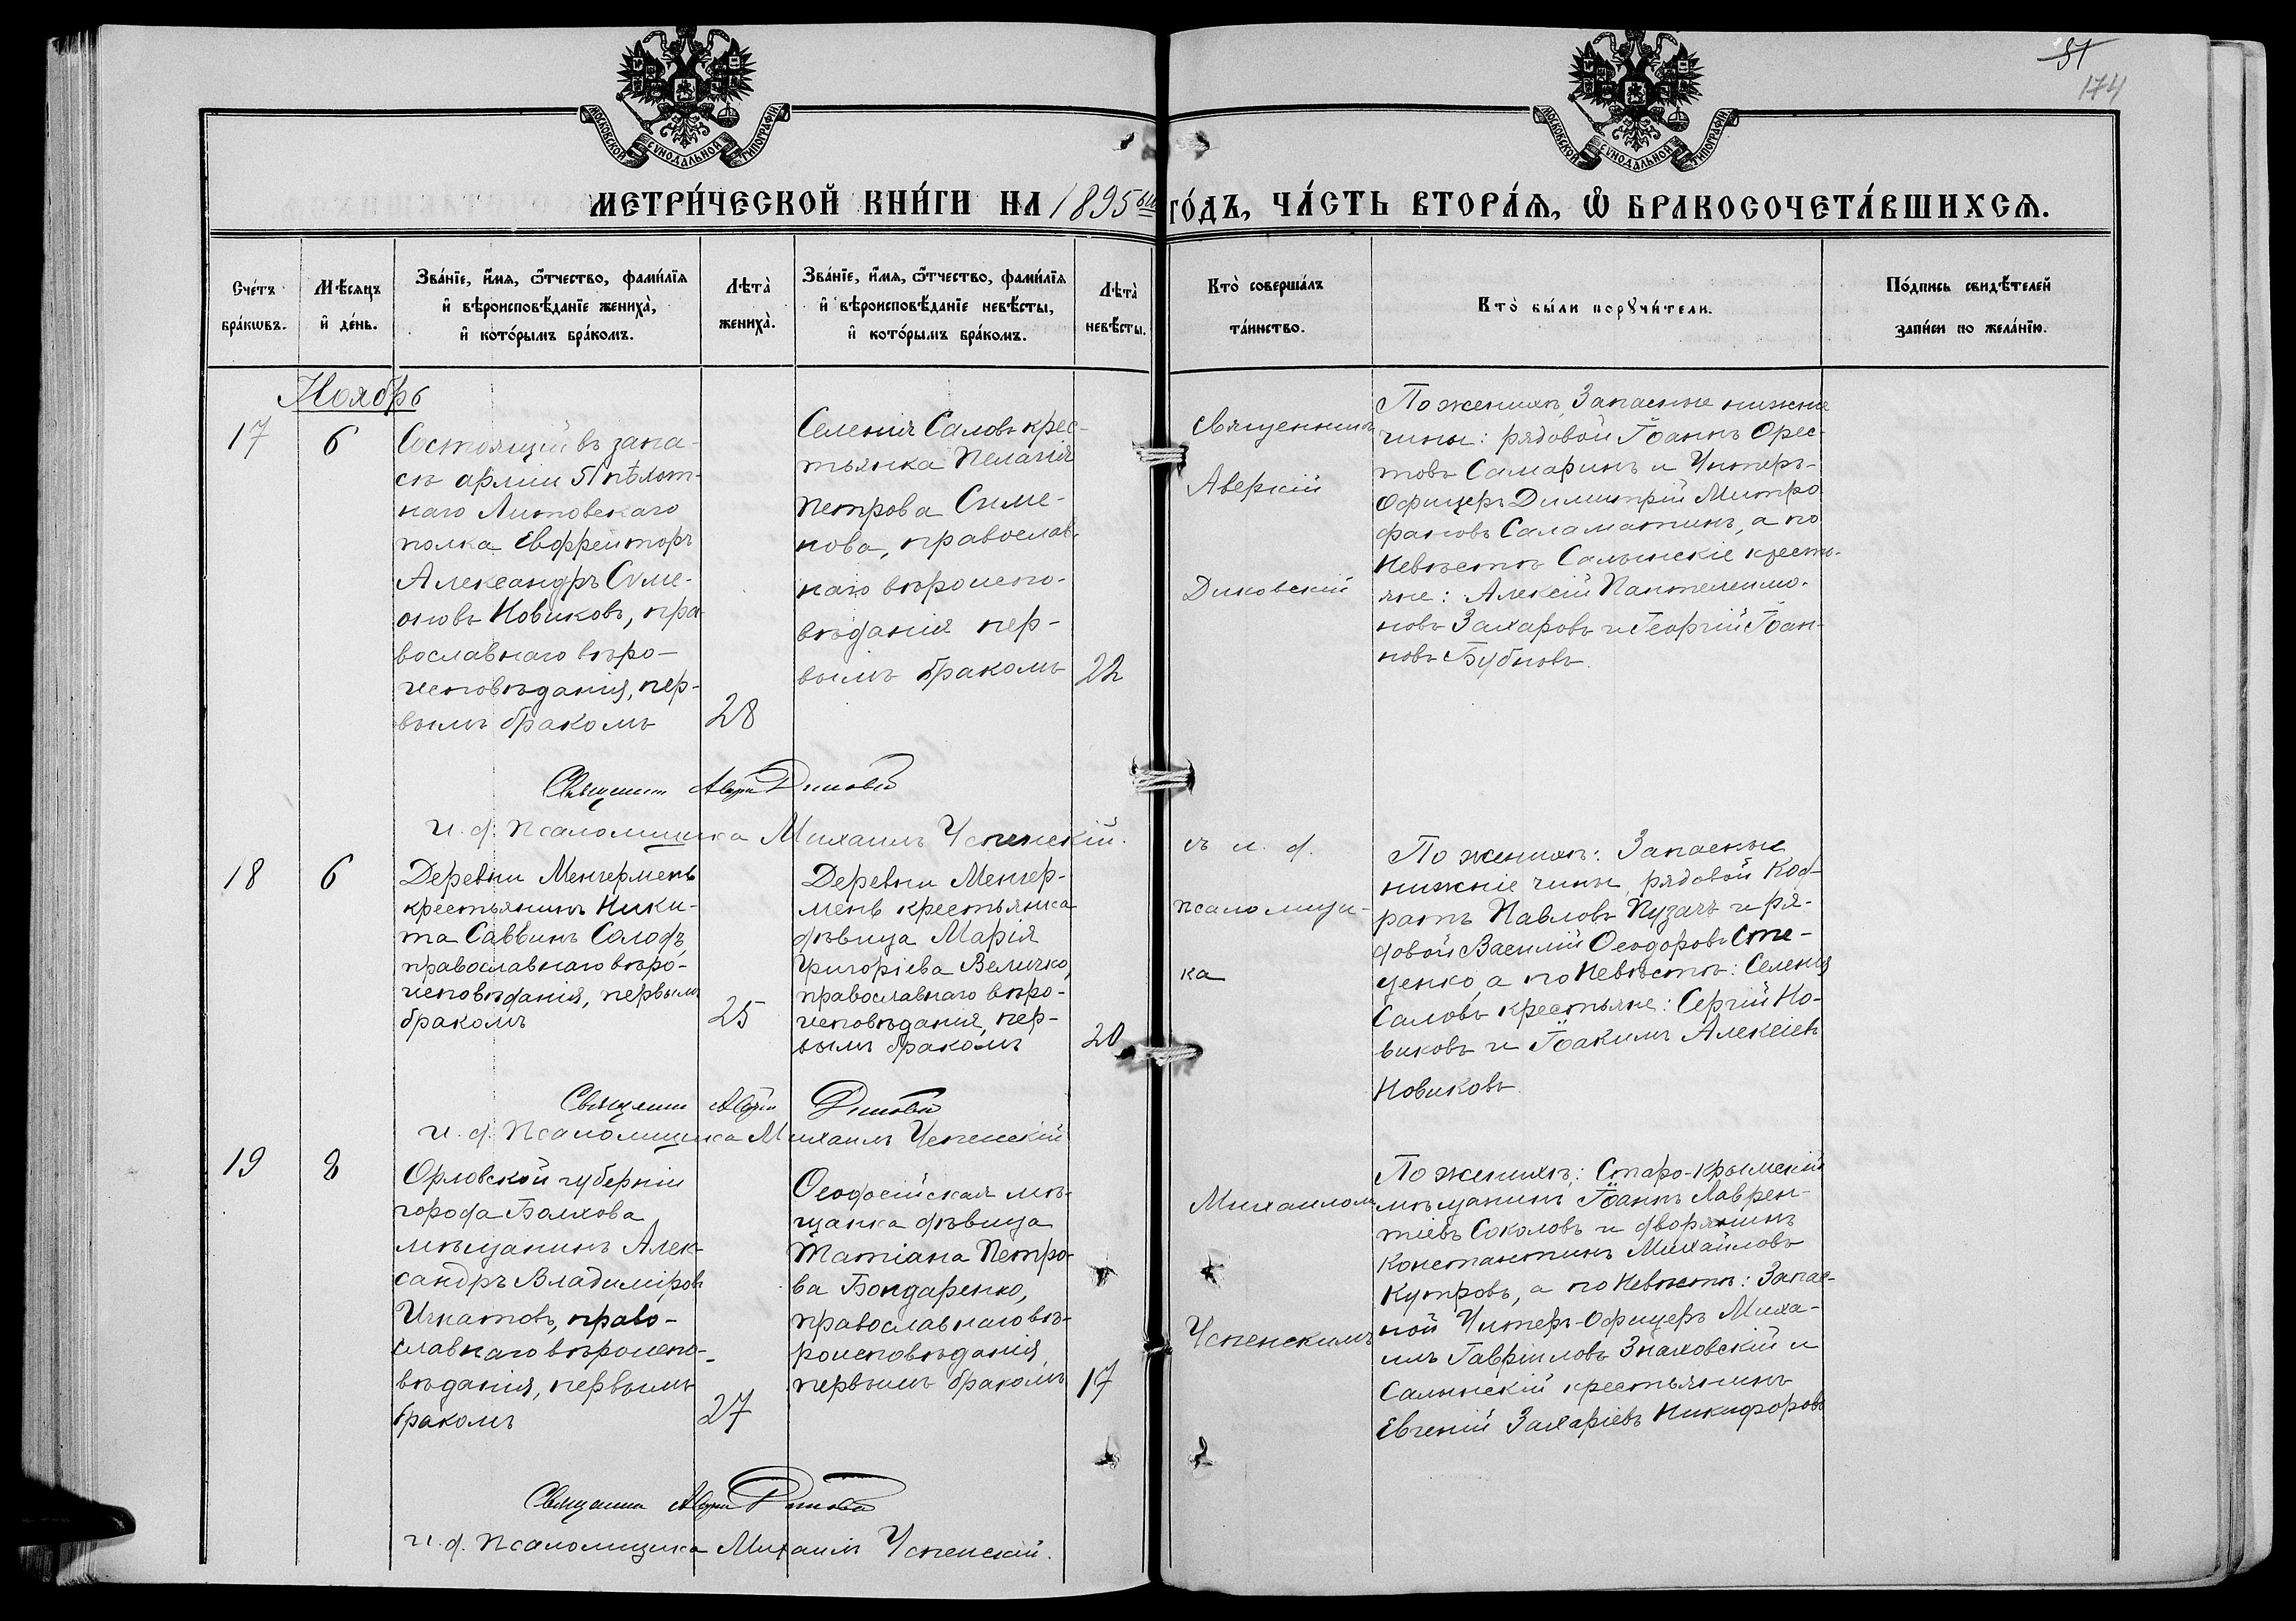 51
174
МОСКОВСКОЙ СѴНОДАЛЬНОЙ ТИПОГРАФІИ
МОСКОВСКОЙ СѴНОДАЛЬНОЙ ТИПОГРАФІИ
МЕТРИ́ЧЕСКОЙ КНИ́ГИ НА 1895ый ГО́ДЪ, ЧА́СТЬ ВТОРА́Ѧ, Ѽ БРАКОСОЧЕТА́ВШИХСѦ.
Сче́тъ
бра́кѡвъ.
Мѣ́сѧцъ
и҆ де́нь.
Зва́нїе, и҆́мѧ, ѻ҆́тчество, фамѝлїѧ
и҆ вѣроисповѣ́данїе жениха̀,
и҆ кото́рымъ бра́комъ.
Лѣта̀
жениха̀.
Зва́нїе, и҆́мѧ, ѻ҆́тчество, фамѝлїѧ
и҆ вѣроисповѣ́данїе невѣ́сты,
и҆ кото́рымъ бра́комъ.
Лѣта̀
невѣ́сты.
Кто̀ соверша́лъ
та́инство.
Кто̀ бы́ли порꙋчи́тели.
По́дпись свидѣ́телей
за́писи по жела́нїю.
Ноябрь
17
6
Состоящій въ запа-
сѣ арміи 51 пѣхот-
наго Литовскаго
полка Ефрейторъ
Александръ Симе-
оновъ Новиковъ, пра
вославнаго вѣро-
исповѣданія, пер-
вымъ бракомъ
28
Селенія Саловъ крес-
тьянка Пелагія
Петрова Симе-
нова, православ-
наго вѣроиспо-
вѣданія пер-
вымъ бракомъ
22
Священникъ
Аверкій
Диковскій
По женихѣ, Запасные нижніе
чины: рядовой Іоаннъ Орес-
товъ Самаринъ и Унтеръ-
Офицеръ Димитрій Митро
фановъ Саламатинъ, а по
Невѣстѣ Салынскіе кресть-
яне: Алексій Пантелеимо-
новъ Захаровъ и Георгій Іоан-
новъ Бубновъ.
Священникъ
и. д. Псаломщика Михаилъ Успенскій.
18
6
Деревни Менгерменъ
крестьянинъ Ники-
та Саввинъ Солодъ,
православнаго вѣро-
исповѣданія, первымъ
бракомъ
25
Деревни Менгер-
менъ крестьянка
дѣвица Марія
Григоріева Величко,
православнаго вѣро-
исповѣданія, пер-
вымъ бракомъ
20
съ и. д.
псаломщи-
ка
По женихѣ: Запасные
нижніе чины, рядовой Код-
ратъ Павловъ Пузачъ и ря-
довой Василій Ѳеодоровъ Сте-
ценко, а по Невѣстѣ: Селенія
Саловъ крестьяне: Сергій Но-
виковъ и Іоакимъ Алексіевъ
Новиковъ
Священникъ
и. д. Псаломщика Михаилъ Успенскій
19
8
Орловской губерніи
города Болхова
мѣщанинъ Алек-
сандръ Владиміровъ
Игнатовъ, право-
славнаго вѣроиспо-
вѣданія, первымъ
бракомъ
27
Ѳеодосійская мѣ-
щанка дѣвица
Татіана Петро-
ва Бондаренко,
православнаго вѣ-
роисповѣданія,
первымъ бракомъ
17
Михаиломъ
Успенскимъ
По женихѣ: Старо-Крымскій
мѣщанинъ Іоаннъ Лаврен-
тіевъ Соколовъ и дворянинъ
Константинъ Михайловъ
Кутровъ, а по Невѣстѣ: Запас-
ной Унтеръ-Офицеръ Миха-
илъ Гавріиловъ Знаховскій и
Салынскій крестьянинъ
Евгеній Захаріевъ Никифоровъ
Священникъ
и. д. Псаломщика Михаилъ Успенскій.